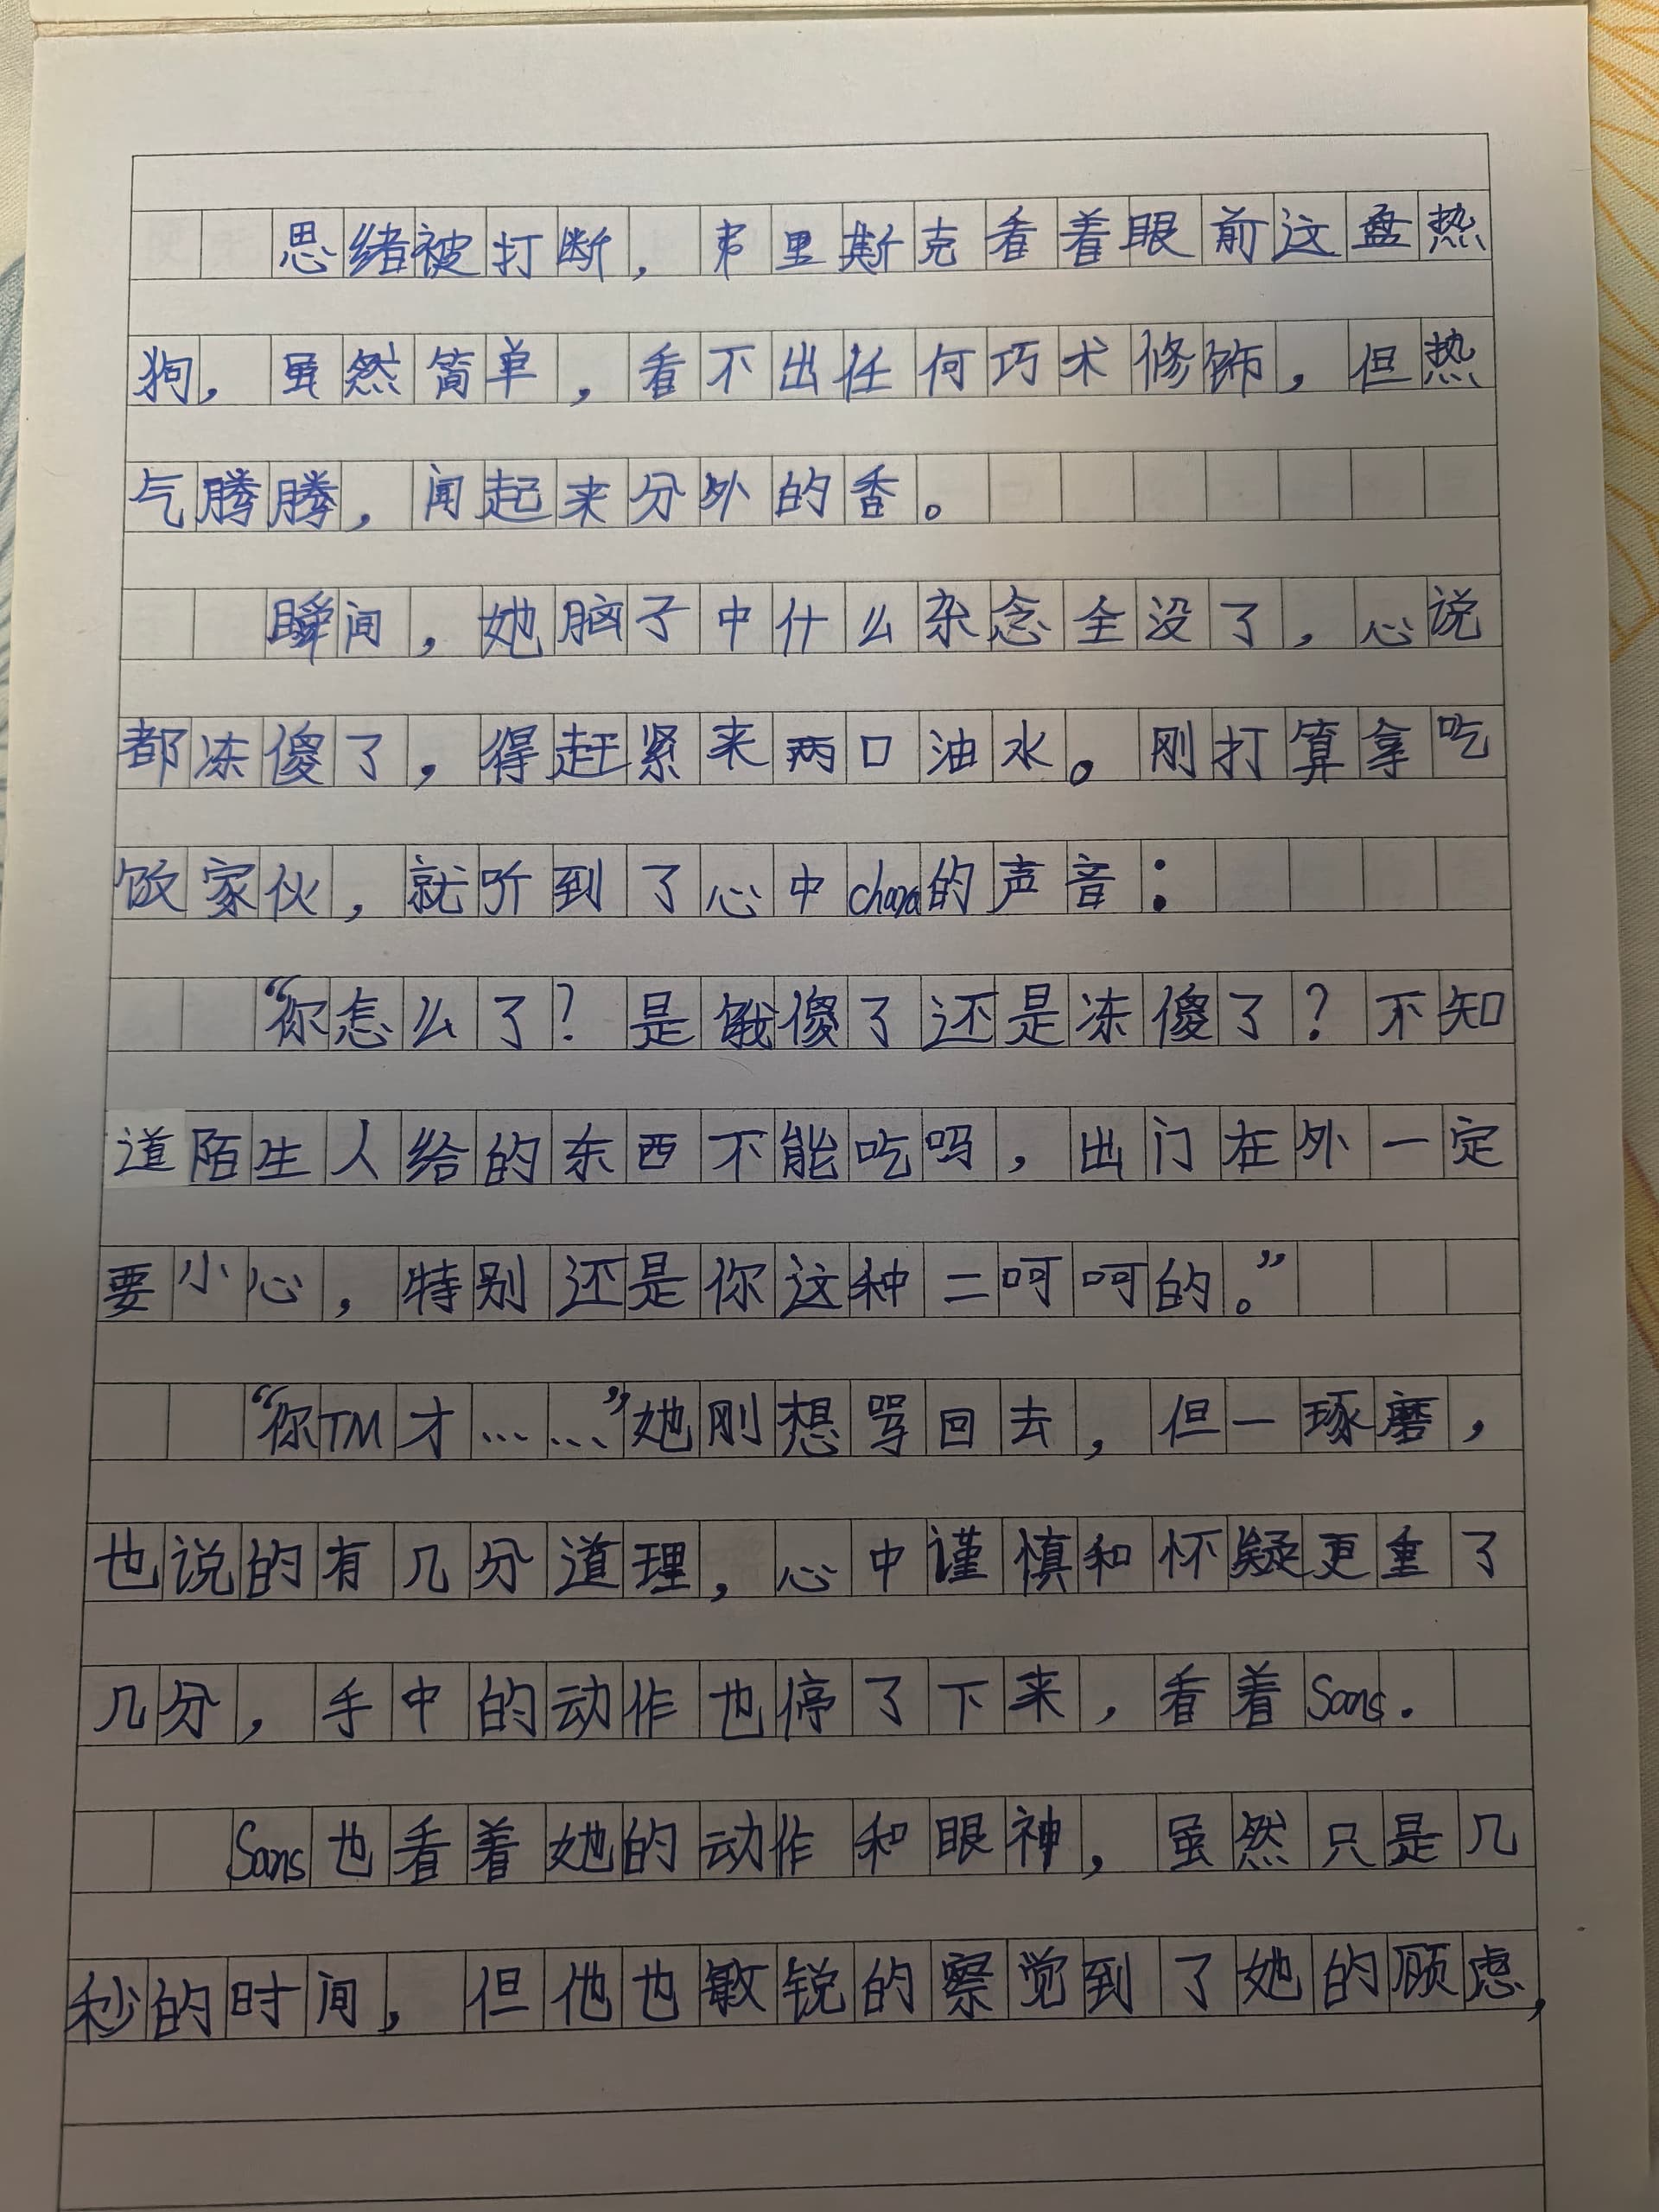 思绪被打断，弗里斯克看着眼前这盘热
狗，虽然简单，看不出任何巧术修饰，但热
气腾腾，闻起来分外的香。
瞬间，她脑子中什么杂念全没了，心说
都冻傻了，得赶紧来两口油水。刚打算拿吃
饭家伙，就听到了心中chara的声音：
“你怎么了？是饿傻了还是冻傻了？不知
道陌生人给的东西不能吃吗，出门在外一定
要小心，特别还是你这种二呵呵的。”
“你TM才……”她刚想骂回去，但一琢磨，
也说的有几分道理，心中谨慎和怀疑更重了
几分，手中的动作也停了下来，看着Sans.
Sans也看着她的动作和眼神，虽然只是几
秒的时间，但他也敏锐的察觉到了她的顾虑，